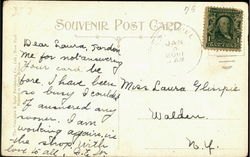 75
SOUVENIR POST CARD
JAN
Dear Laura, Pardon
me for not answering
Your card be
fore. I have been
so busy I couldn't
of answered any
sooner. I am
working again in
the shop, with
love to all.
Miss Laura Glimpie
Walden
N.Y.